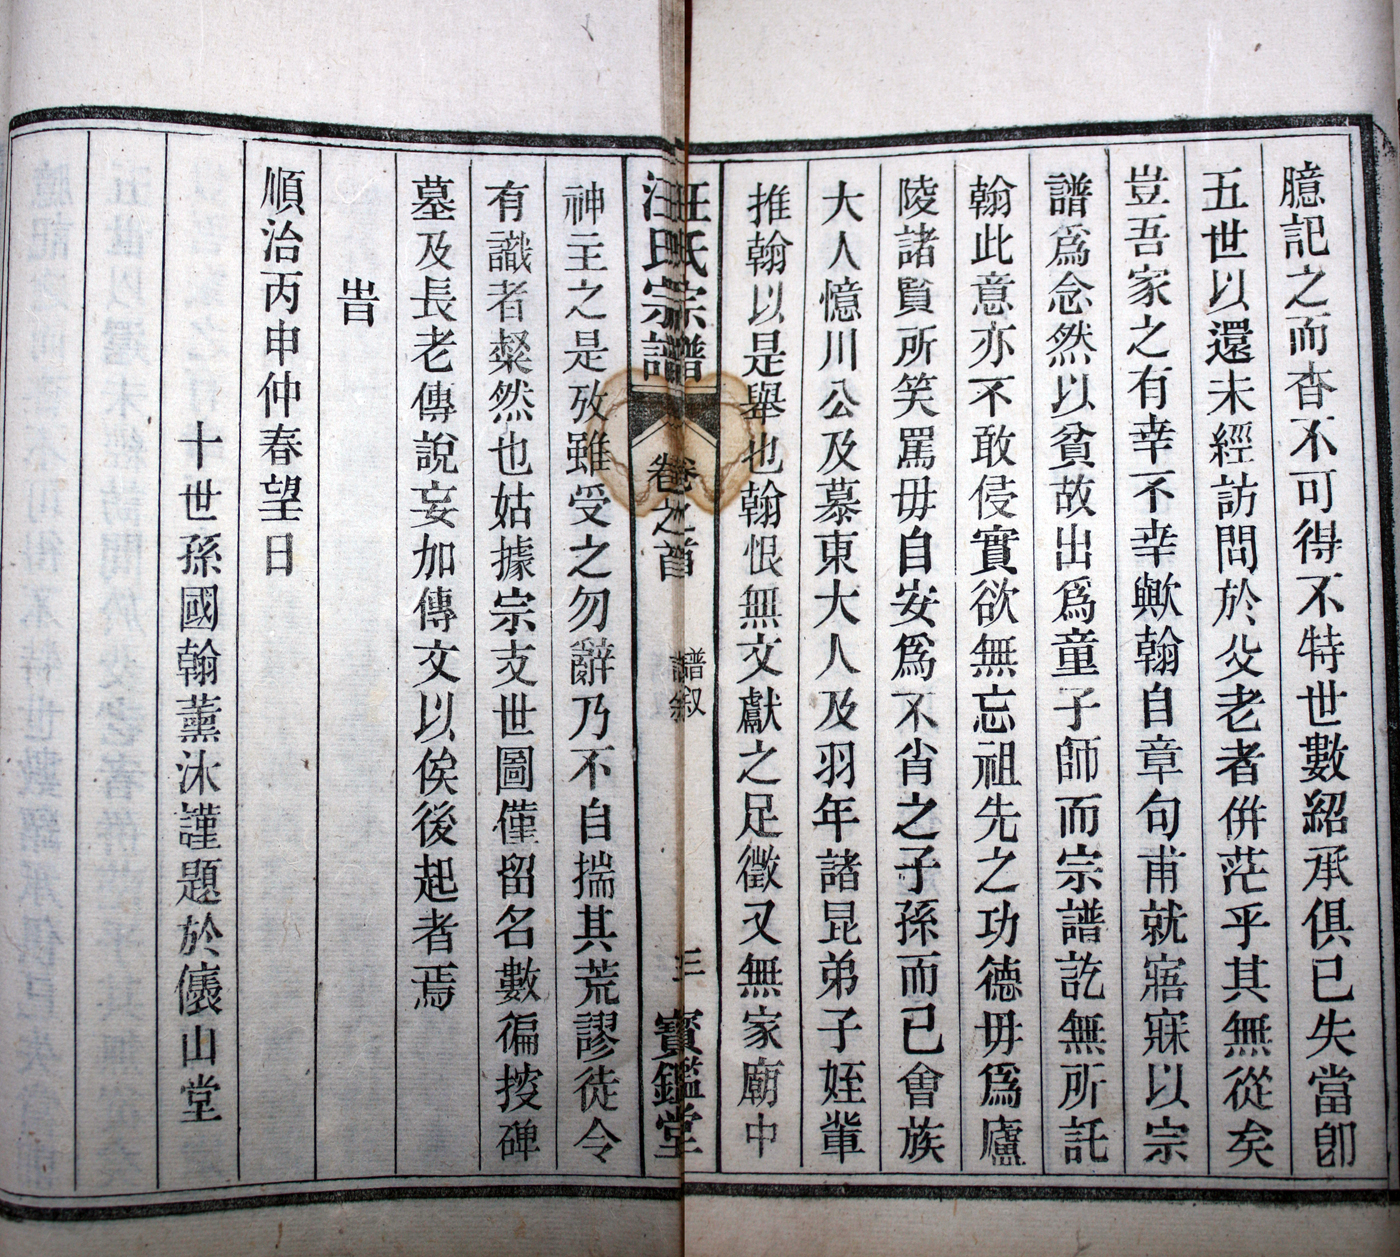 臆記之而杳不可得不特世數紹承俱已失當卽
五世以還未經訪問於父老者併茫乎其無從矣
豈吾家之有幸不幸歟翰自章句甫就寤寐以宗
譜爲念然以貧故出爲童子師而宗譜訖無所託
翰此意亦不敢侵實欲無忘祖先之功德毋爲廬
陵諸賢所笑罵毋自安爲不肖之子孫而已會族
大人憶川公及慕東大人及羽年諸昆弟子姪輩
推翰以是舉也翰恨無文獻之足徵又無家廟中
汪氏宗譜 卷之首 譜叙 三 寶鑑堂
神主之是攷雖受之勿辭乃不自揣其荒謬徒令
有識者粲然也姑據宗支世圖僅留名數徧搜碑
墓及長老傳說妄加傳文以俟後起者焉
旹
順治丙申仲春望日
十世孫國翰薰沐謹題於儴山堂